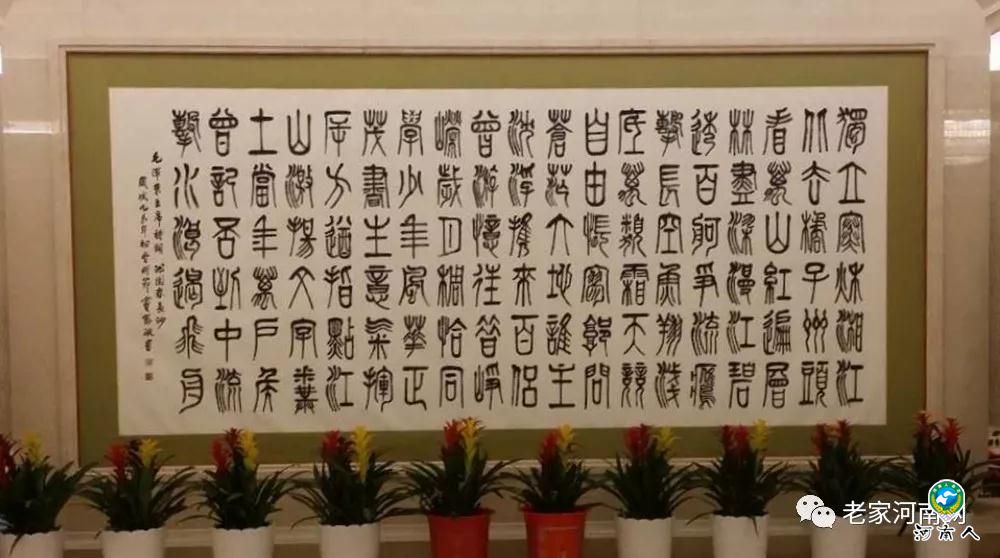 獨立寒秋湘江
北去橘子洲頭
看萬山紅遍層
林盡染漫江碧
透百舸爭流鷹
擊長空魚翔淺
底萬類霜天競
自由悵寥廓問
蒼茫大地誰主
沈浮攜來百侶
曾游憶往昔崢
嶸歲月稠恰同
學少年風華正
茂書生意氣揮
斥方遒指點江
山激揚文字糞
土當年萬戶侯
曾記否到中流
擊水浪遏飛舟
毛澤東主席詩詞 沁園春長沙
老家河南网
河南人